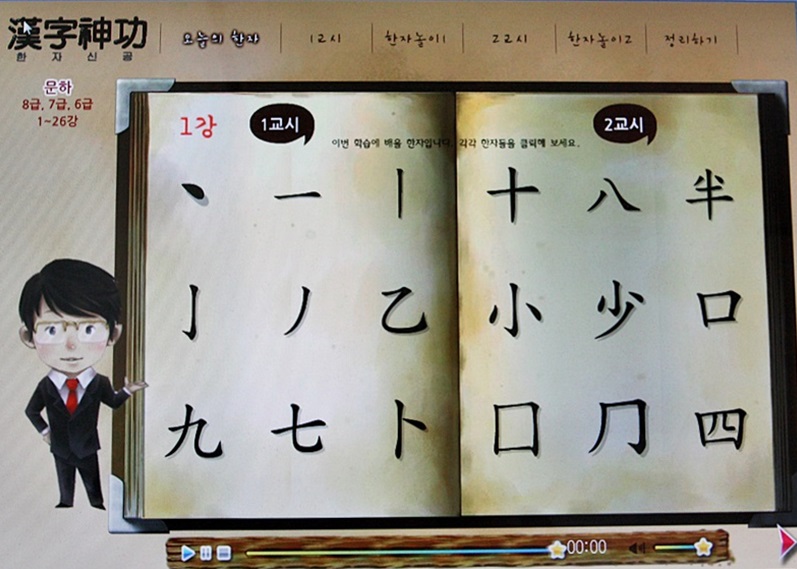 漢字神功
한 자 신 공
오늘의 한자
1교시
한자놀이1
2교시
한자놀이2
정리하기
문하
8급, 7급, 6급
1~26강
1강
1교시
2교시
이번 학습에 배울 한자입니다. 각각 한자들을 클릭해 보세요.
丶 一 丨
亅 丿 乙
九 七 卜
十 八 半
小 少 口
囗 冂 四
00:00